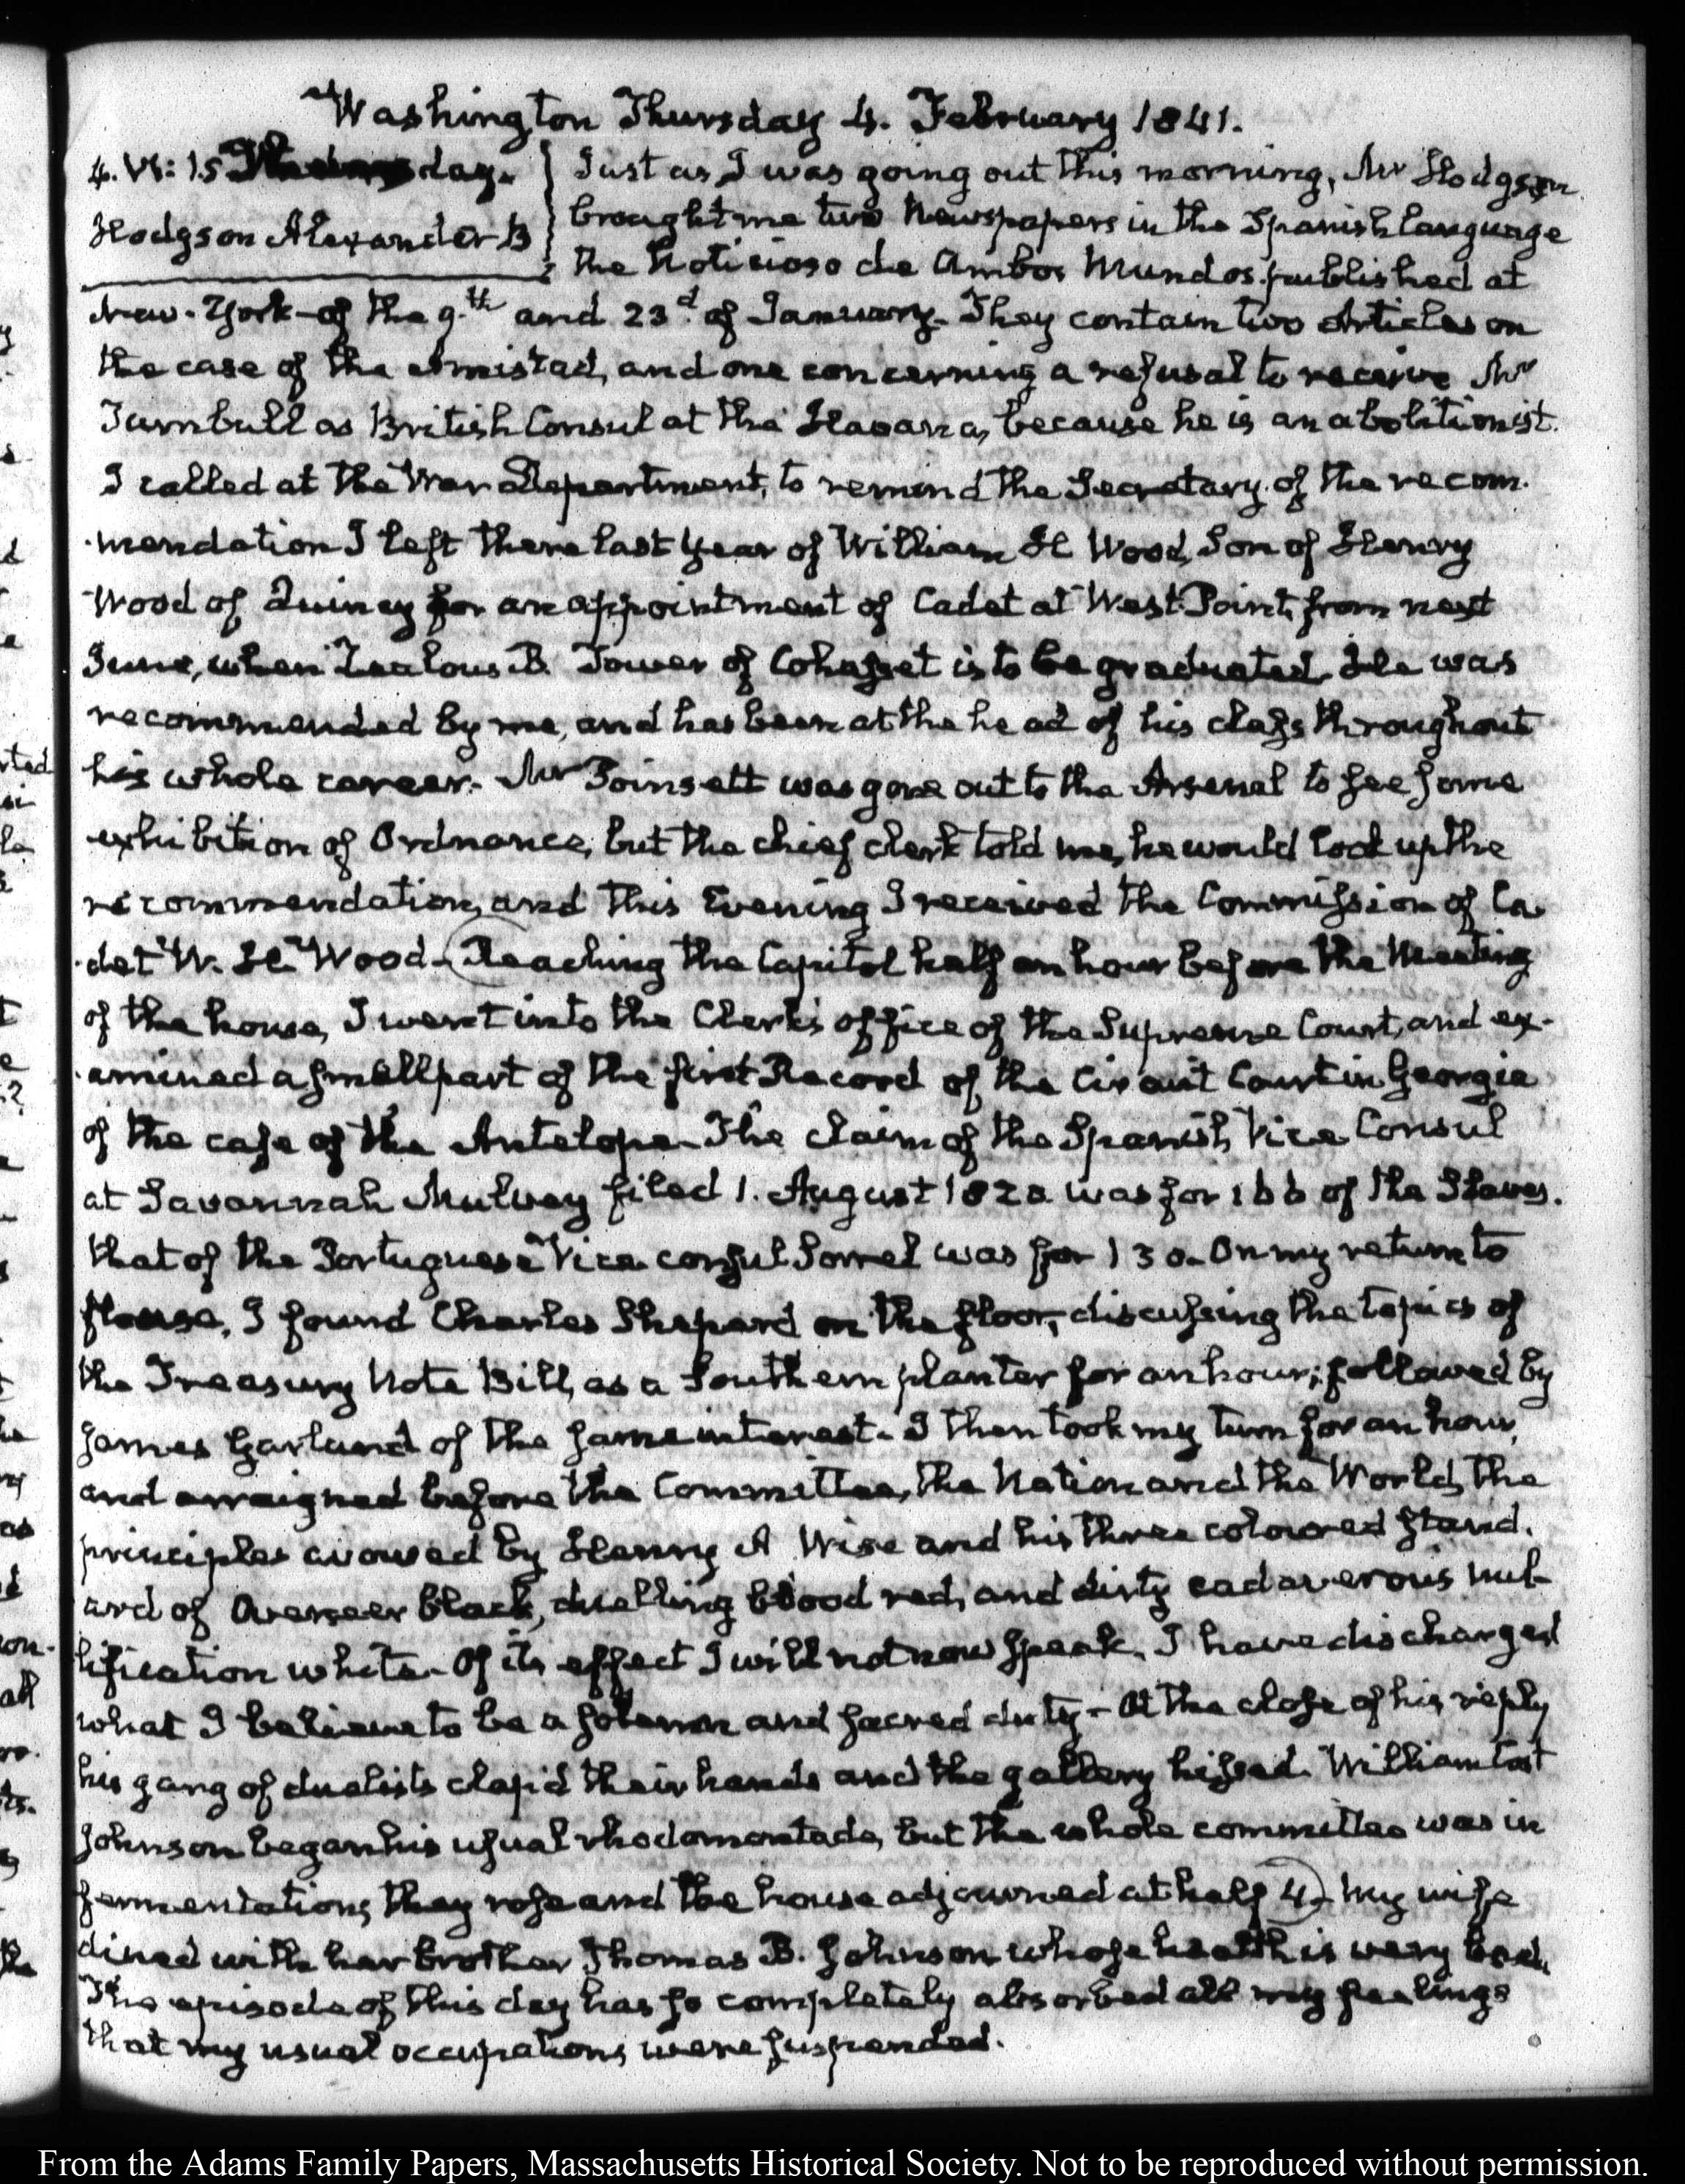 Washington Thursday 4. February 1841.
4. VI: 15 day.
Hodgson Alexander B
Just as I was going out this morning, Mr Hodgson
brought me two Newspapers in the Spanish language
the Noticioso de Ambos Mundos published at
New-York—of the 9.th and 23d. of January. They contain two Articles on
the case of the Amistad, and one concerning a refusal to receive Mr
Turnbull as British Consul at the Havana, because he is an abolitionist.
I called at the War Department, to remind the Secretary of the recom-
-mendation I left there last year of William H Wood, Son of Henry
Wood of Quincy for an appointment of Cadet at West-Point, from next
June, when Zealous B. Tower of Cohasset is to be graduated. He was
recommended by me, and has been at the head of his class throughout
his whole career. Mr Poinsett was gone out to the Arsenal to see some
exhibition of Ordnance, but the chief clerk told me, he would look up the
recommendation, and this Evening I received the Commission of Ca-
-det W. H. Wood—Reaching the Capitol half an hour before the Meeting
of the house, I went into the Clerk's office of the Supreme Court, and ex-
-amined a small part of the first Record of the Circuit Court in Georgia
of the case of the Antelope. The claim of the Spanish Vice Consul
at Savannah Mulvey filed 1. August 1820 was for 166 of the Slaves.
that of the Portuguese Vice consul Sorrel was for 130. On my return to
House, I found Charles Shepard on the floor, discussing the topics of
the Treasury Note Bill, as a Southern planter for an hour; followed by
James Garland of the same interest. I then took my turn for an hour,
and arraigned before the Committee, the Nation and the World, the
principles avowed by Henry A Wise and his three coloured stand-
ard of Overseer black, duelling blood red, and dirty cadaverous nul-
lification white. Of its effect I will not now speak. I have discharged
what I believe to be a solemn and sacred duty—At the close of his reply
his gang of duelists clap'd their hands and the gallery hissed. William Cost
Johnson began his usual rhodomontade, but the whole committee was in
fermentation, they rose and the house adjourned at half 4. My wife
dined with her brother Thomas B. Johnson whose health is very bad.
The episode of this day has so completely absorbed all my feelings
that my usual occupations were suspended.
From the Adams Family Papers, Massachusetts Historical Society. Not to be reproduced without permission.